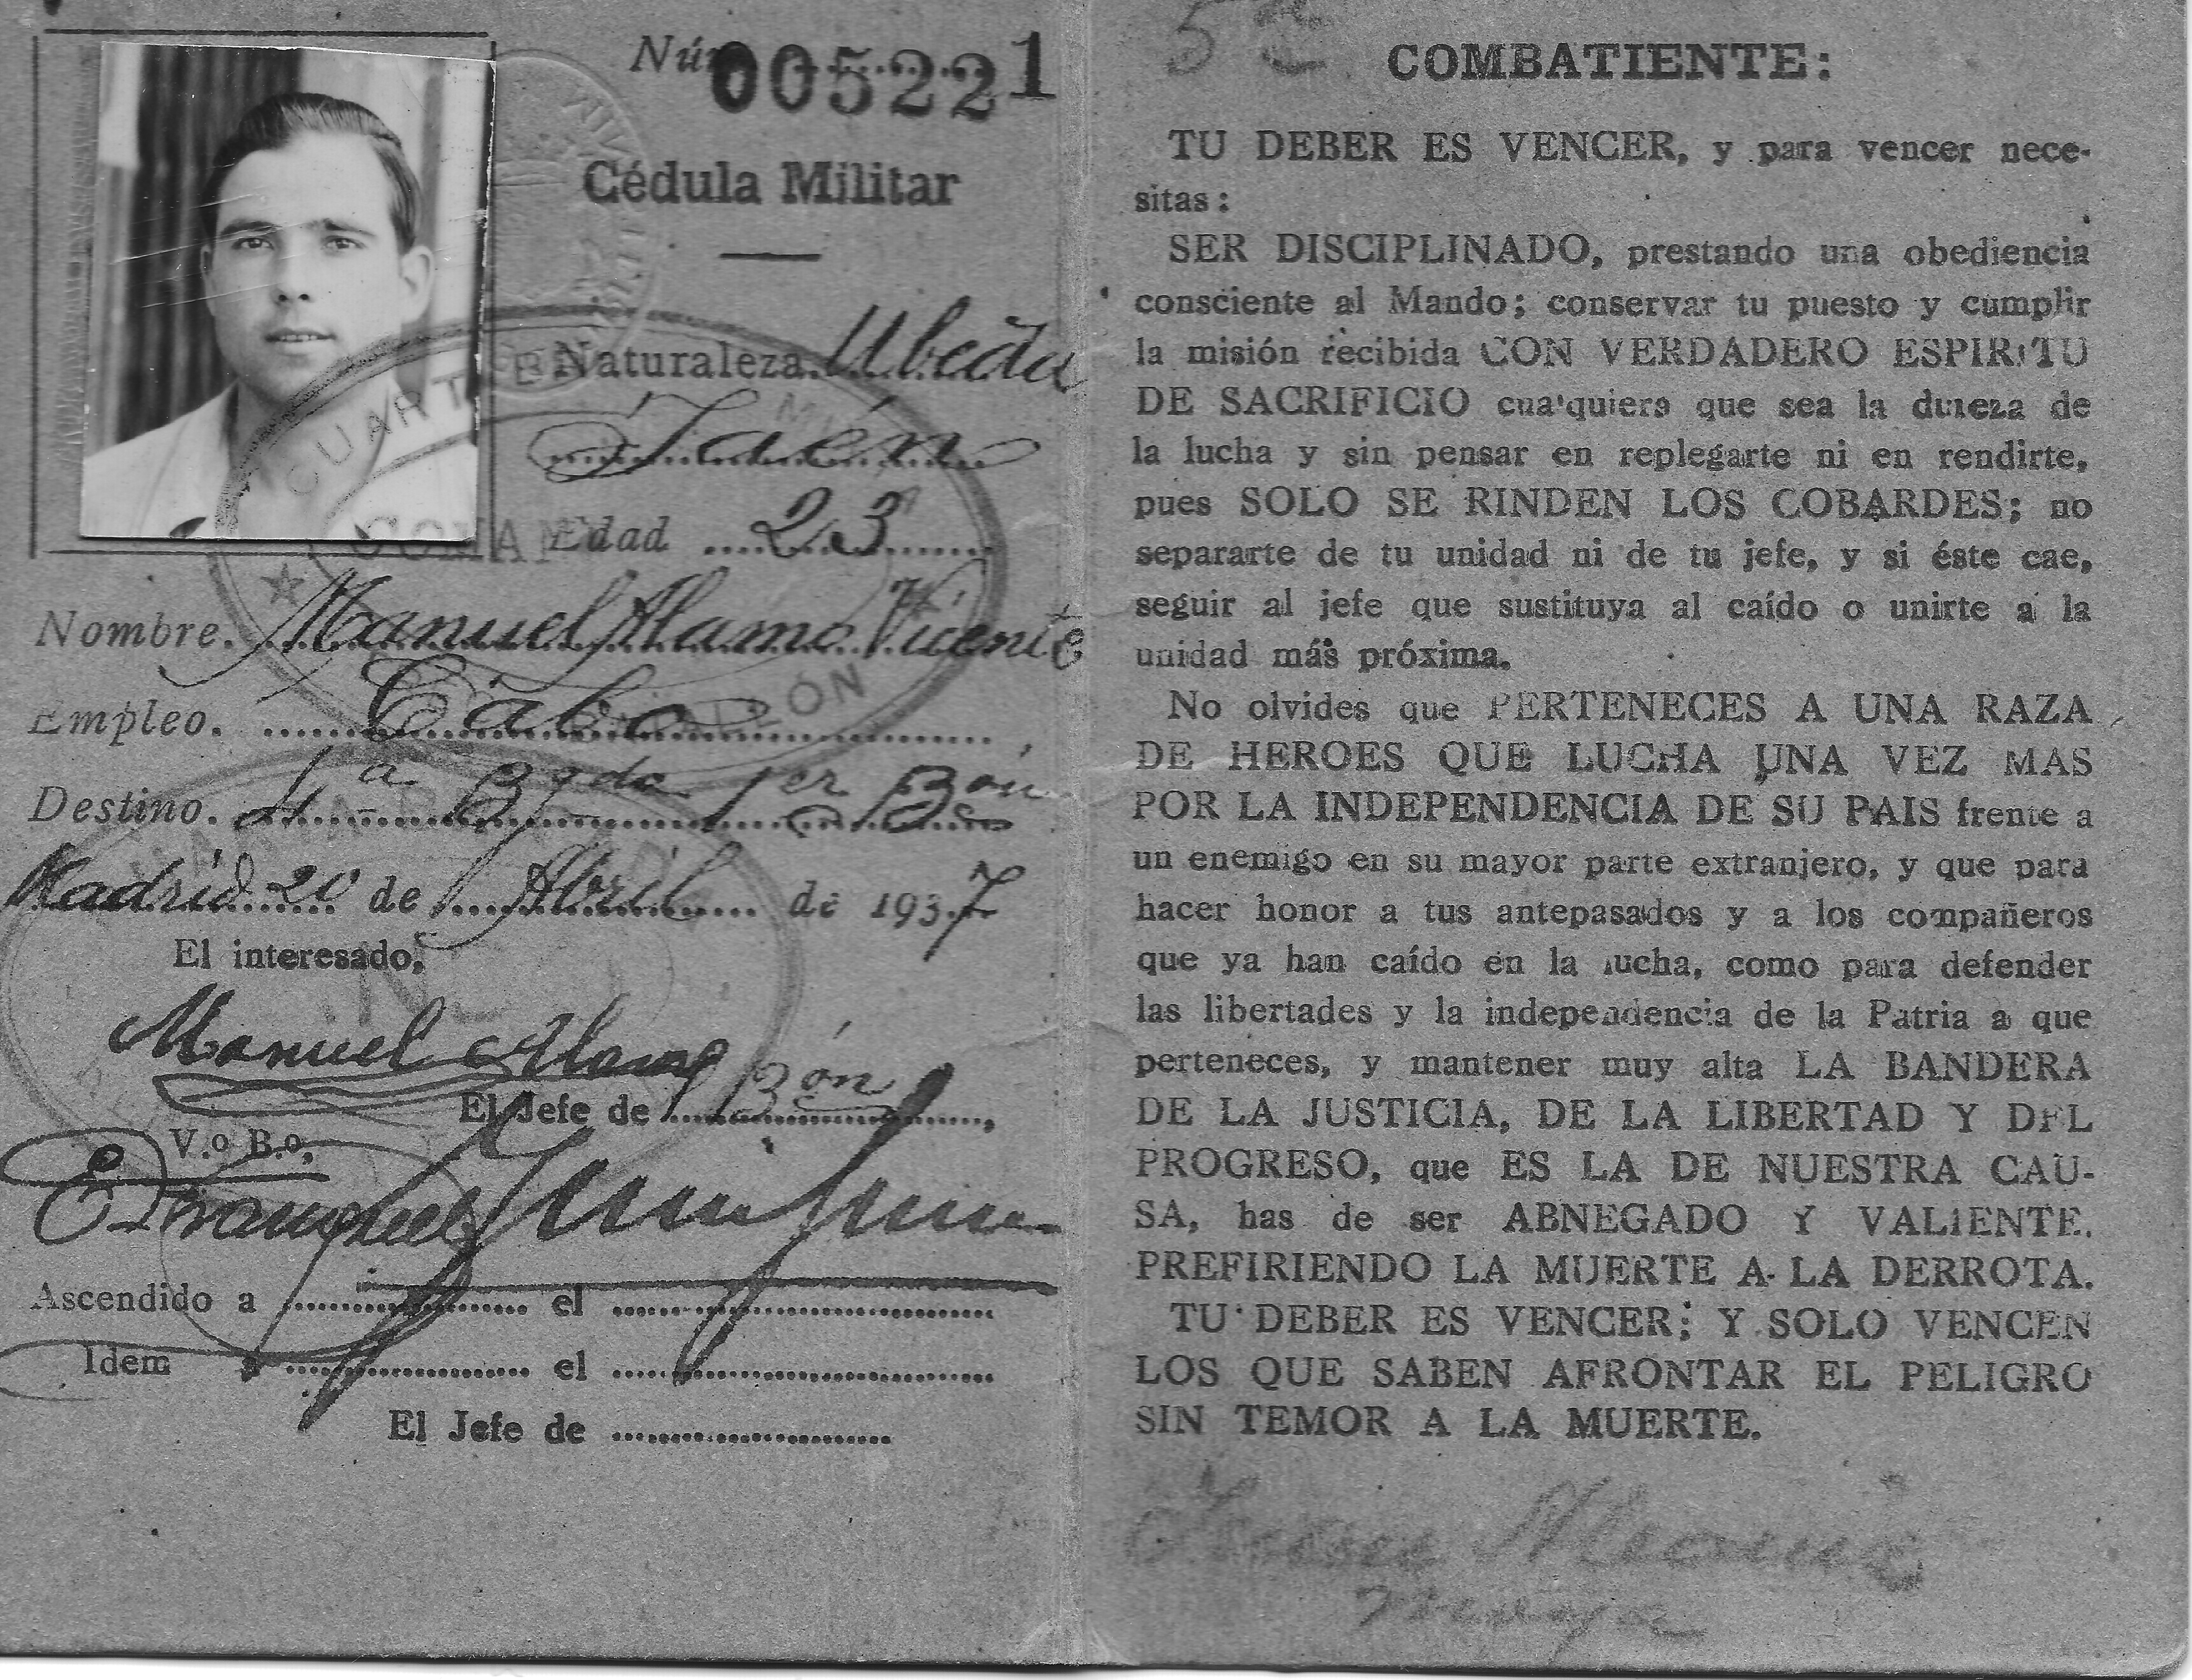 Núm 005221
Cédula Militar
Naturaleza. Ubeda
Jaén
Edad 23
Nombre. Manuel Alamo Vicente
Empleo. Cabo
Destino. 4ª Bgda 1er Bón
Madrid 20 de Abril de 1937
El interesado,
Manuel Alamo
El Jefe de Bón
V.º B.º,
Ascendido a el
Idem a el
El Jefe de
CUARTEL
COMAN
COMBATIENTE:
TU DEBER ES VENCER, y para vencer nece-
sitas:
SER DISCIPLINADO, prestando una obediencia
consciente al Mando; conservar tu puesto y cumplir
la misión recibida CON VERDADERO ESPIRITU
DE SACRIFICIO cualquiera que sea la dureza de
la lucha y sin pensar en replegarte ni en rendirte,
pues SOLO SE RINDEN LOS COBARDES; no
separarte de tu unidad ni de tu jefe, y si éste cae,
seguir al jefe que sustituya al caído o unirte a la
unidad más próxima.
No olvides que PERTENECES A UNA RAZA
DE HEROES QUE LUCHA UNA VEZ MAS
POR LA INDEPENDENCIA DE SU PAIS frente a
un enemigo en su mayor parte extranjero, y que para
hacer honor a tus antepasados y a los compañeros
que ya han caído en la lucha, como para defender
las libertades y la independencia de la Patria a que
perteneces, y mantener muy alta LA BANDERA
DE LA JUSTICIA, DE LA LIBERTAD Y DEL
PROGRESO, que ES LA DE NUESTRA CAU-
SA, has de ser ABNEGADO Y VALIENTE,
PREFIRIENDO LA MUERTE A LA DERROTA.
TU DEBER ES VENCER; Y SOLO VENCEN
LOS QUE SABEN AFRONTAR EL PELIGRO
SIN TEMOR A LA MUERTE.